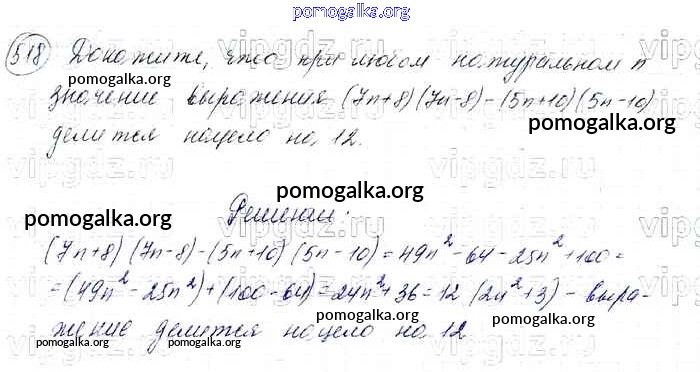 pomogalka.org
518 Докажите, что при любом натуральном n
pomogalka.org
значение выражения (7n+8)(7n-8)-(5n+10)(5n-10)
pomogalka.org
делится нацело на 12.
vipgdz.ru
pomogalka.org
Решение:
pomogalka.org
(7n+8)(7n-8)-(5n+10)(5n-10)=49n²-64-25n²+100=
=(49n²-25n²)+(100-64)=24n²+36=12(2n²+3) - выра-
pomogalka.org pomogalka.org
жение делится нацело на 12
pomogalka.org pomogalka.org